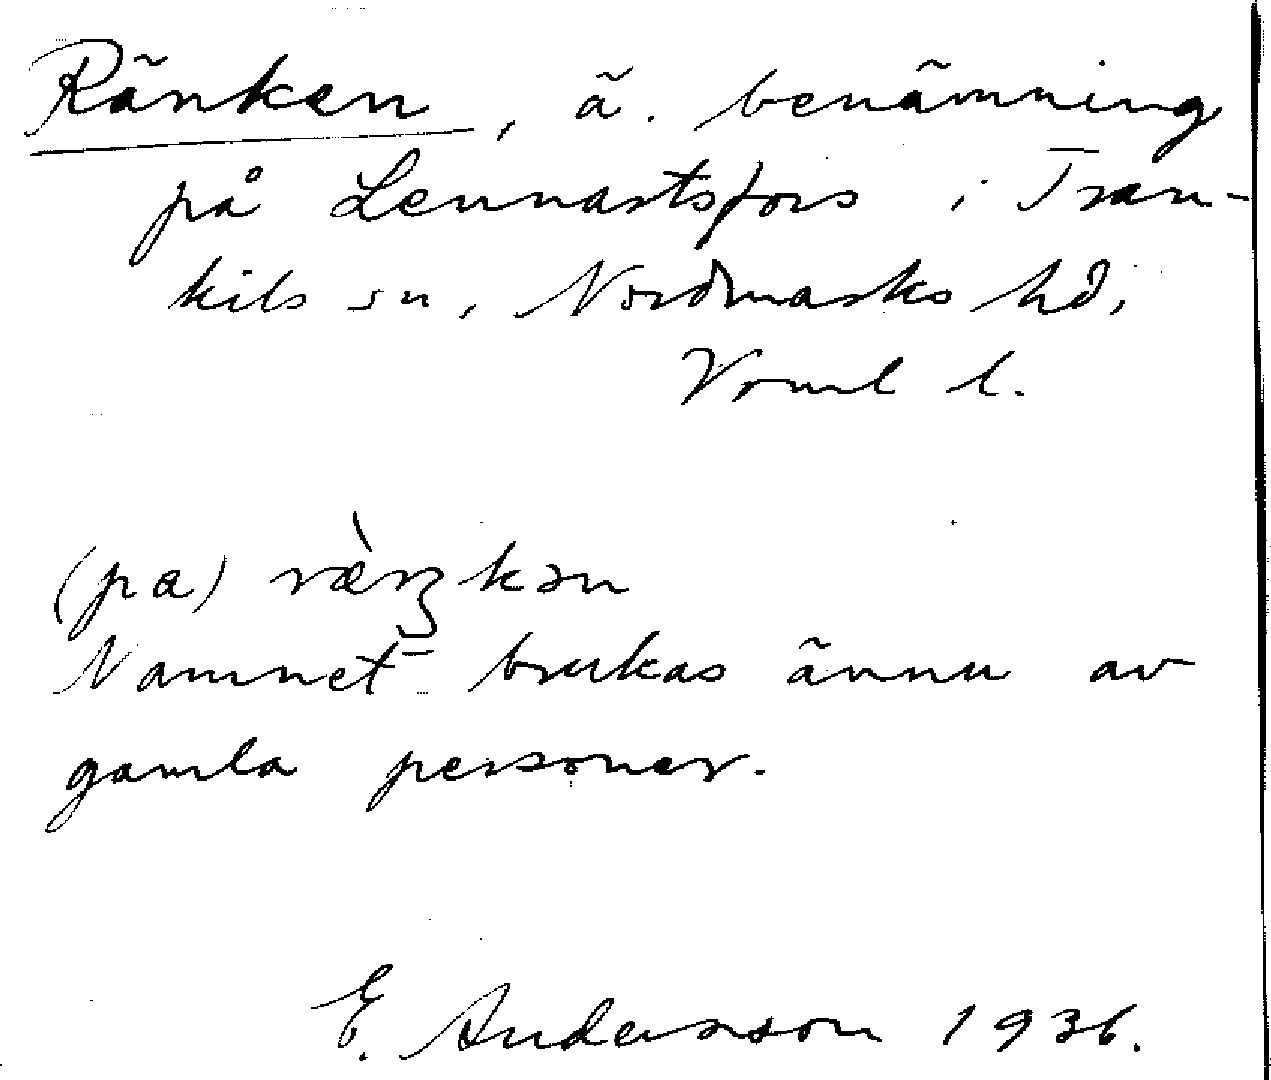 Ränken, ä. benämning
på Lennartsfors i Tran-
kils sn, Nordmarks hd,
Vrml l.
(pa) ræ̀ŋkən
Namnet brukas ännu av
gamla personer.
E. Anderson 1936.